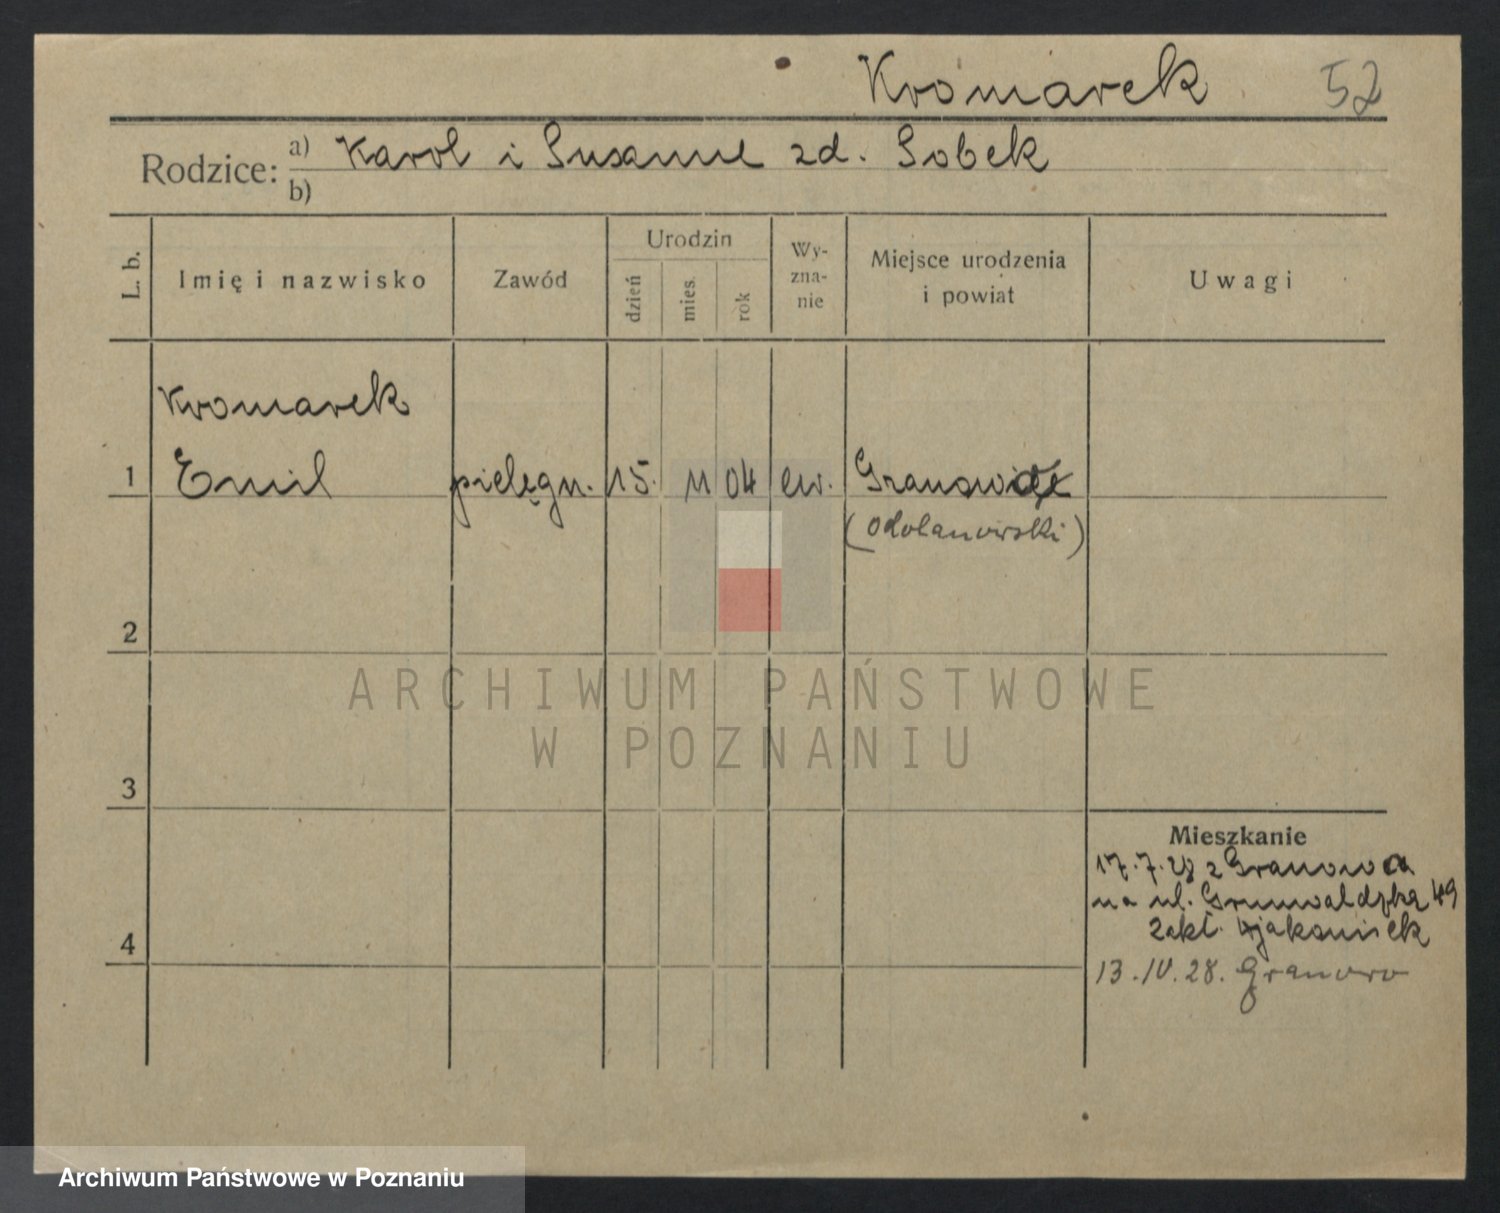 Kromarek 52
Rodzice: a) Karol i Susanne zd. Sobek
b)
L. b. Imię i nazwisko Zawód Urodzin dzień mies. rok Wy-zna-nie Miejsce urodzenia i powiat Uwagi
Kromarek
1 Emil pielęgn. 15. 11 04 ew. Granowiec
(odolanowski)
2
ARCHIWUM PAŃSTWOWE
W POZNANIU
3
Mieszkanie
17.7.28 z Granowca
na ul. Grunwaldzka 49
4 Zakł. Djakonisek
13.IV.28. Granowo
Archiwum Państwowe w Poznaniu